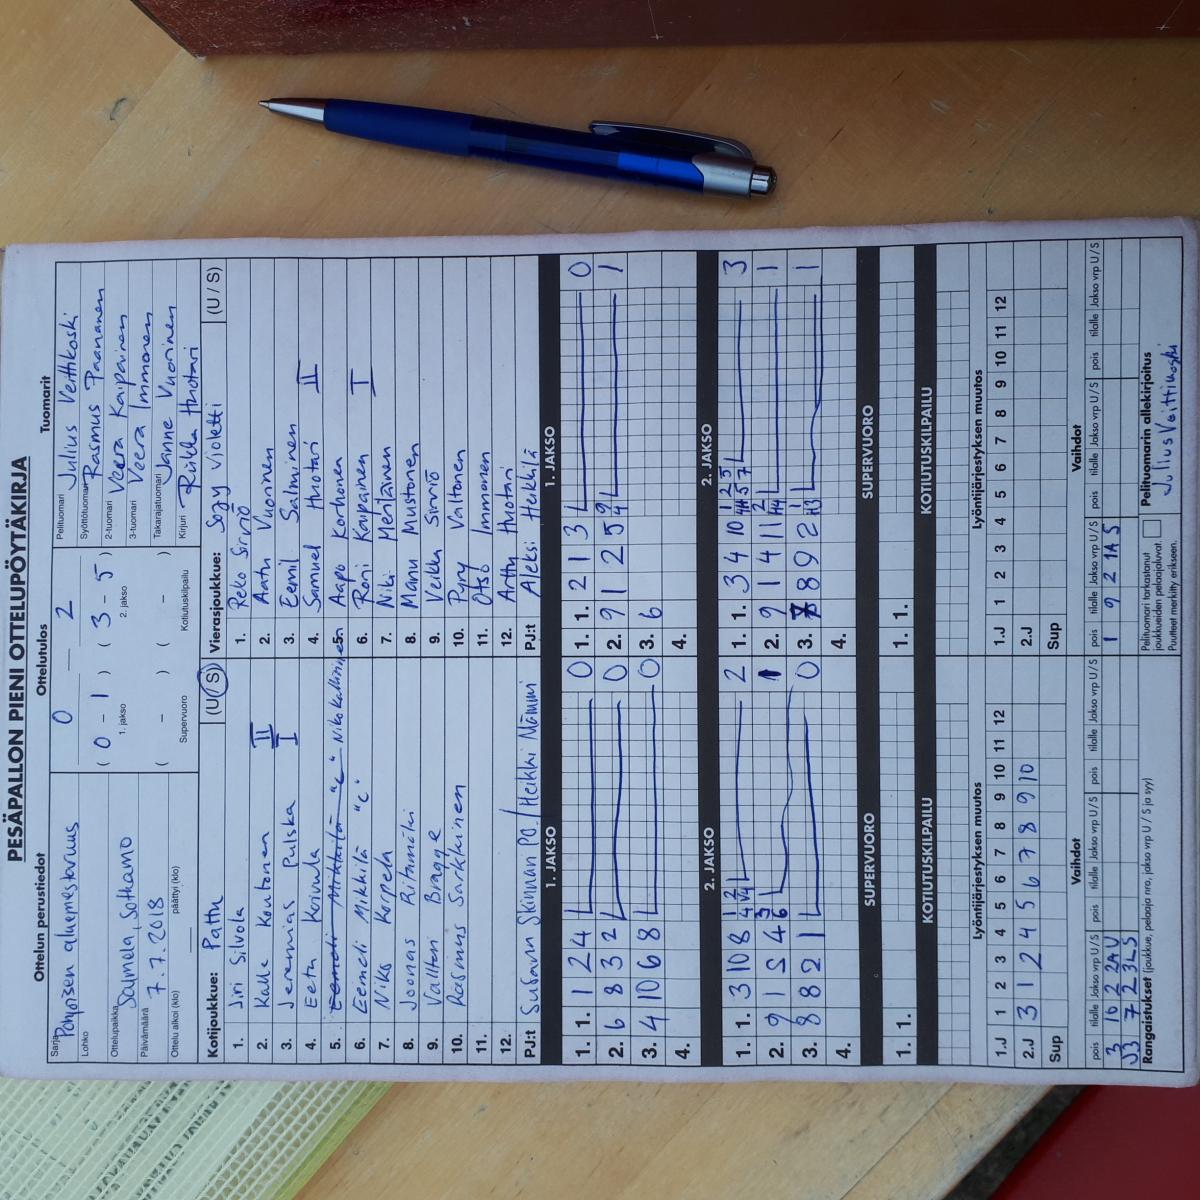 PESÄPALLON PIENI OTTELUPÖYTÄKIRJA
Ottelun perustiedot
Sarja Pohjoisen aluemestaruus
Lohko
Ottelupaikka Salmela, Sotkamo
Päivämäärä 7.7.2018
Ottelu alkoi (klo) päättyi (klo)
Ottelutulos
0 2
( 0 - 1 ) ( 3 - 5 )
1. jakso 2. jakso
( - ) ( - )
Supervuoro Kotiutuskilpailu
Tuomarit
Pelituomari Julius Verttikoski
Syöttötuomari Rasmus Paananen
2-tuomari Veera Kaipainen
3-tuomari Veera Immonen
Takarajatuomari Janne Vuorinen
Kirjuri Riikka Huotari
Kotijoukkue: Pattu (U / S)
1. Jiri Silvola
2. Kalle Kontonen II
3. Jeremias Pulska I
4. Eetu Koivula
5. Niko Kallinen
6. Eemeli Mikkilä "c"
7. Niko Korpela
8. Joonas Riihimäki
9. Valtteri Bragge
10. Rasmus Sarkkinen
11.
12.
PJ:t Susann Skinnari PO. / Heikki Mämmi
Vierasjoukkue: Sojy violetti (U / S)
1. Reko Sirviö
2. Aatu Vuorinen
3. Eemil Salminen
4. Samuel Huotari II
5. Aapo Korhonen
6. Roni Kaupainen I
7. Niki Meriläinen
8. Manu Mustonen
9. Veikka Sirviö
10. Pyry Valtonen
11. Otso Immonen
12. Arttu Huotari
PJ:t Aleksi Heikkilä
1. JAKSO 1. JAKSO
1. 1. 1 2 4 0
2. 6 8 3 2 0
3. 4 10 6 8 0
4.
1. 1. 2 1 3 0
2. 9 1 2 5 1
3. 6
4.
2. JAKSO 2. JAKSO
1. 1. 3 10 8 2
2. 9 1 5 4 1
3. 8 8 2 1 0
4.
1. 1. 3 4 10 3
2. 9 1 4 11 1
3. 8 8 9 2 1
4.
SUPERVUORO SUPERVUORO
1. 1. 1. 1.
KOTIUTUSKILPAILU KOTIUTUSKILPAILU
Lyöntijärjestyksen muutos Lyöntijärjestyksen muutos
1.J 1 2 3 4 5 6 7 8 9 10 11 12 1.J 1 2 3 4 5 6 7 8 9 10 11 12
2.J 3 1 2 4 5 6 7 8 9 10 2.J
Sup Sup
Vaihdot Vaihdot
pois tilalle Jakso vrp U / S pois tilalle Jakso vrp U / S pois tilalle Jakso vrp U / S
3 10 2 2A U
J3 7 2 3L S
pois tilalle Jakso vrp U / S pois tilalle Jakso vrp U / S pois tilalle Jakso vrp U / S
1 9 2 1A S
Rangaistukset (joukkue, pelaaja nro, jakso vrp U / S ja syy)
Pelituomari tarkastanut
joukkueiden pelaajaluvat.
Puutteet merkitty erikseen.
Pelituomarin allekirjoitus
Julius Veittikoski